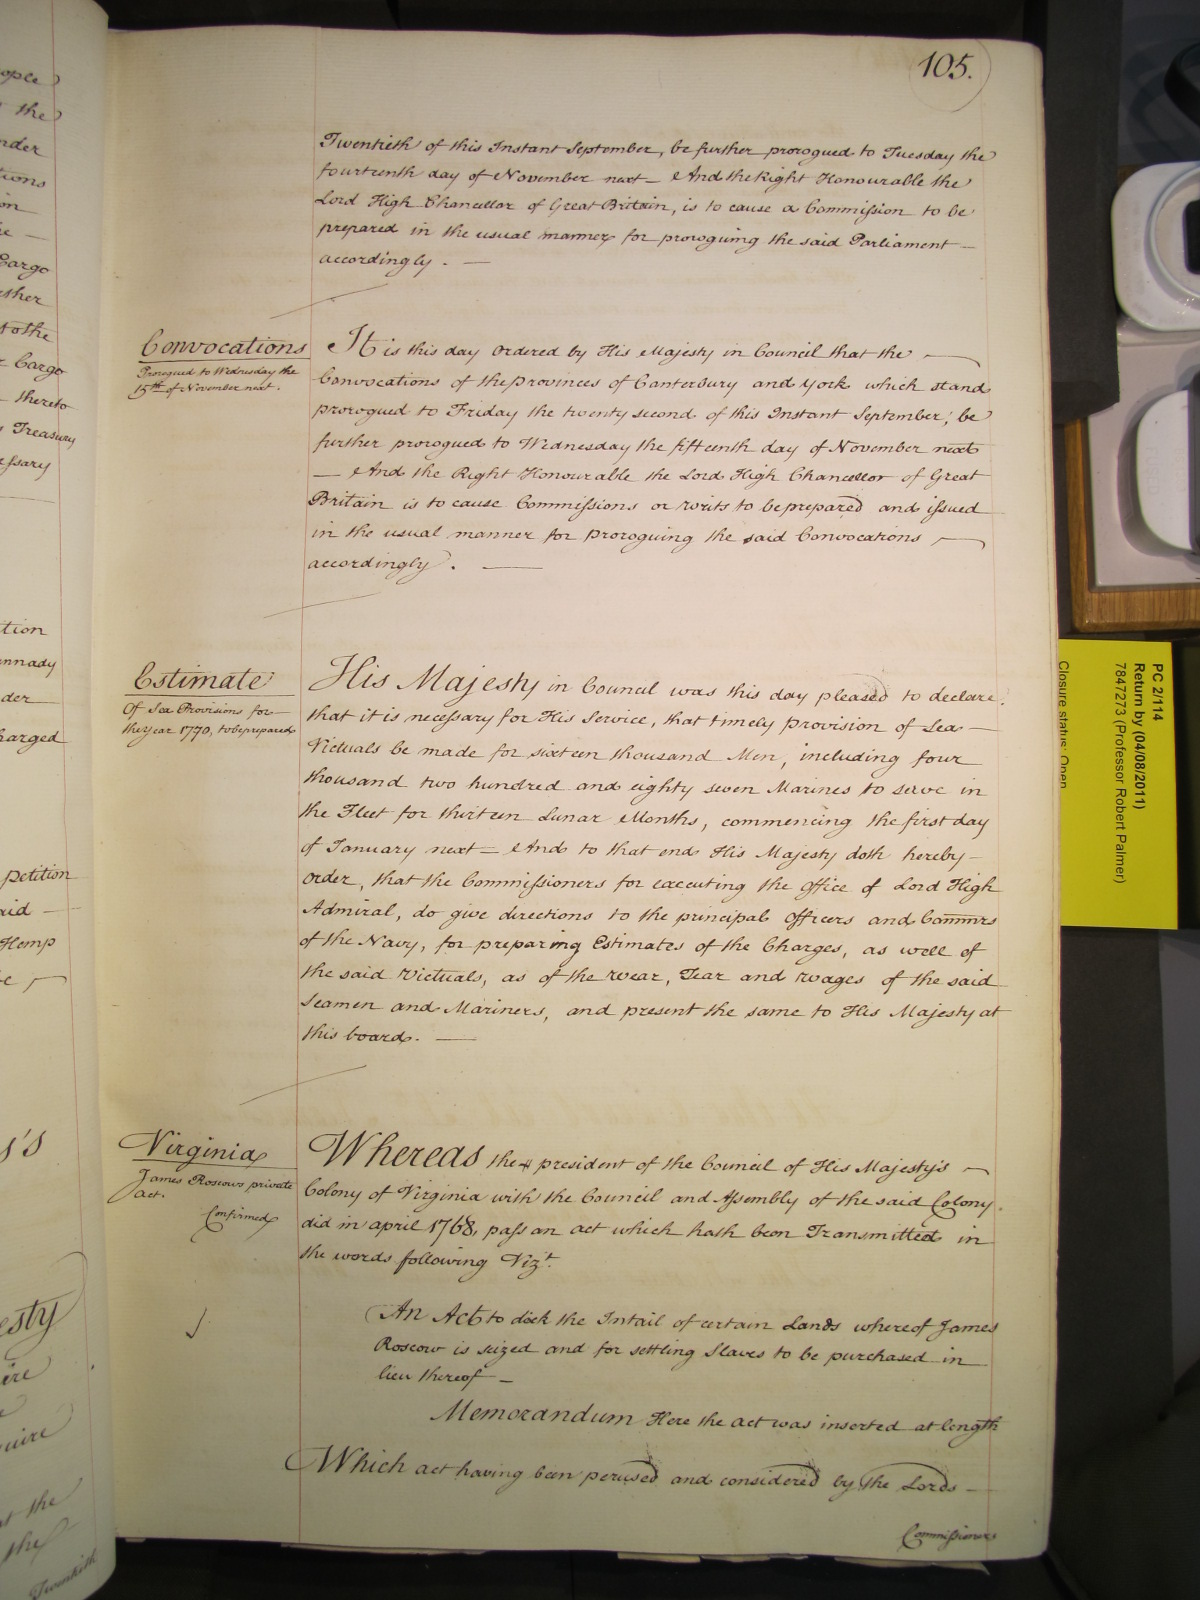 105.
Twentieth of this Instant September, be further prorogued to Tuesday the
fourteenth day of November next — And the Right Honourable the
Lord High Chancellor of Great Britain, is to cause a Commission to be
prepared in the usual manner for proroguing the said Parliament —
accordingly. —
Convocations
Prorogued to Wednesday the
15th of November next.
It is this day ordered by His Majesty in Council that the —
Convocations of the Provinces of Canterbury and York which stand
prorogued to Friday the twenty second of this Instant September, be
further prorogued to Wednesday the fifteenth day of November next
— And the Right Honourable the Lord High Chancellor of Great
Britain is to cause Commissions or writs to be prepared and issued
in the usual manner for proroguing the said Convocations —
accordingly. —
Estimate
Of Sea Provisions for —
the year 1770, to be prepared
His Majesty in Council was this day pleased to declare,
that it is necessary for His Service, that timely provision of Sea —
Victuals be made for sixteen thousand Men, including four
thousand two hundred and eighty seven Marines to serve in
the Fleet for thirteen Lunar Months, commencing the first day
of January next — And to that end His Majesty doth hereby —
Order, that the Commissioners for executing the office of Lord High
Admiral, do give directions to the principal Officers and Commrs
of the Navy, for preparing Estimates of the Charges, as well of
the said Victuals, as of the Wear, Tear and Wages of the said
Seamen and Mariners, and present the same to His Majesty at
this board. —
Virginia
James Roscows private
act.
Confirmed
Whereas the president of the Council of His Majesty's —
Colony of Virginia with the Council and Assembly of the said Colony
did in april 1768, pass an act which hath been Transmitted in
the words following Vizt.
An Act to dock the Intail of certain Lands whereof James
Roscow is seized and for settling Slaves to be purchased in
lieu thereof —
Memorandum Here the act was inserted at length
Which act having been perused and considered by the Lords —
Commissioners
the
Cargo
Cargo
thereto
Treasury
petition
Hemp
the
the
Twentieth
PC 2/114
Return by (04/08/2011)
7847273 (Professor Robert Palmer)
Closure status: Open